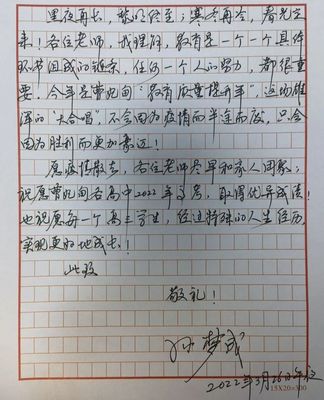 黑夜再长，黎明终至；寒冬再冷，春光定
来！各位老师，我理解，教育是一个一个具体
环节组成的链条，任何一个人的努力，都很重
要。今年是曹妃甸"教育质量提升年"，这场雄
浑的"大合唱"不会因为疫情而半途而废，只会
因为胜利而更加豪迈！
愿疫情散去，各位老师尽早和家人团聚；
祝愿曹妃甸各高中2022年高考，取得优异成绩！
也祝愿每一个高三学生，经过特殊的人生经历，
实现更好地成长！
此致
敬礼！
孙梦成
2022年3月26日午夜
15X20=300